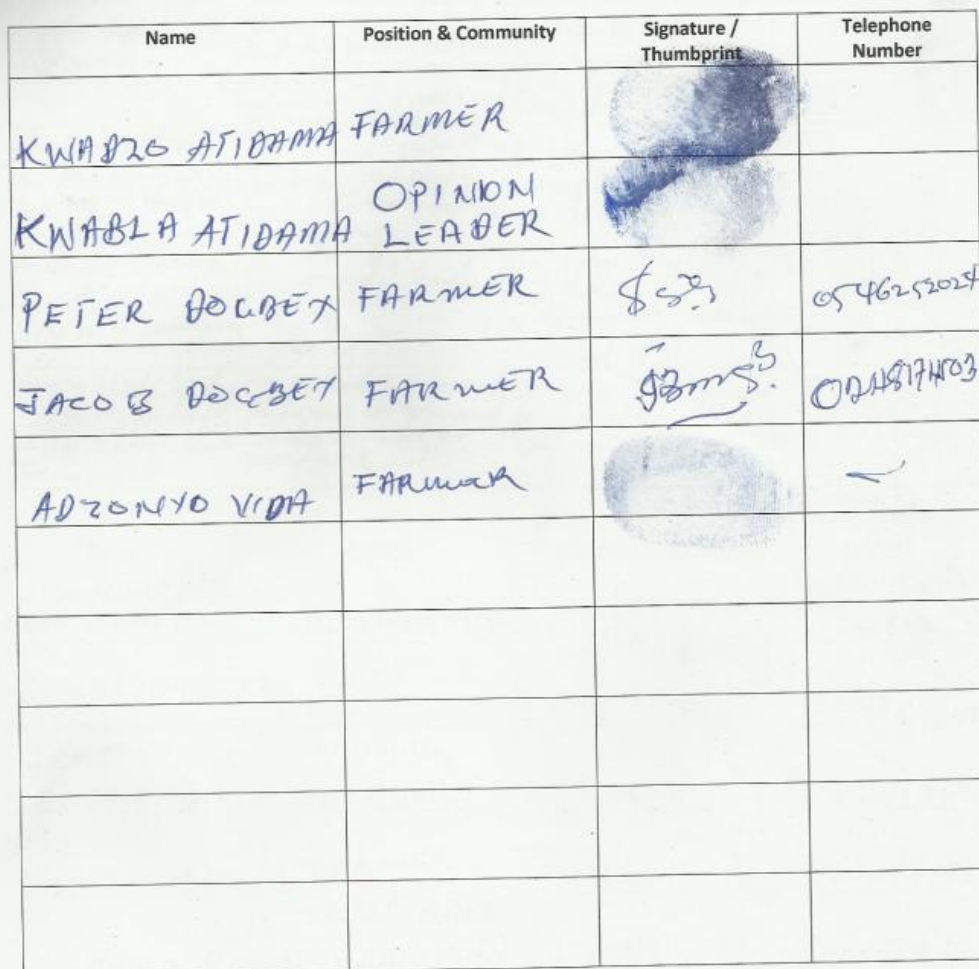 Name Position & Community Signature / Telephone
Thumbprint Number
KWADZO ATIDAMA FARMER
KWABLA ATIDAMA OPINION
LEADER
PETER DOGBEY FARMER
JACOB DOGBEY FARMER
ADZONYO VIDA FARMER